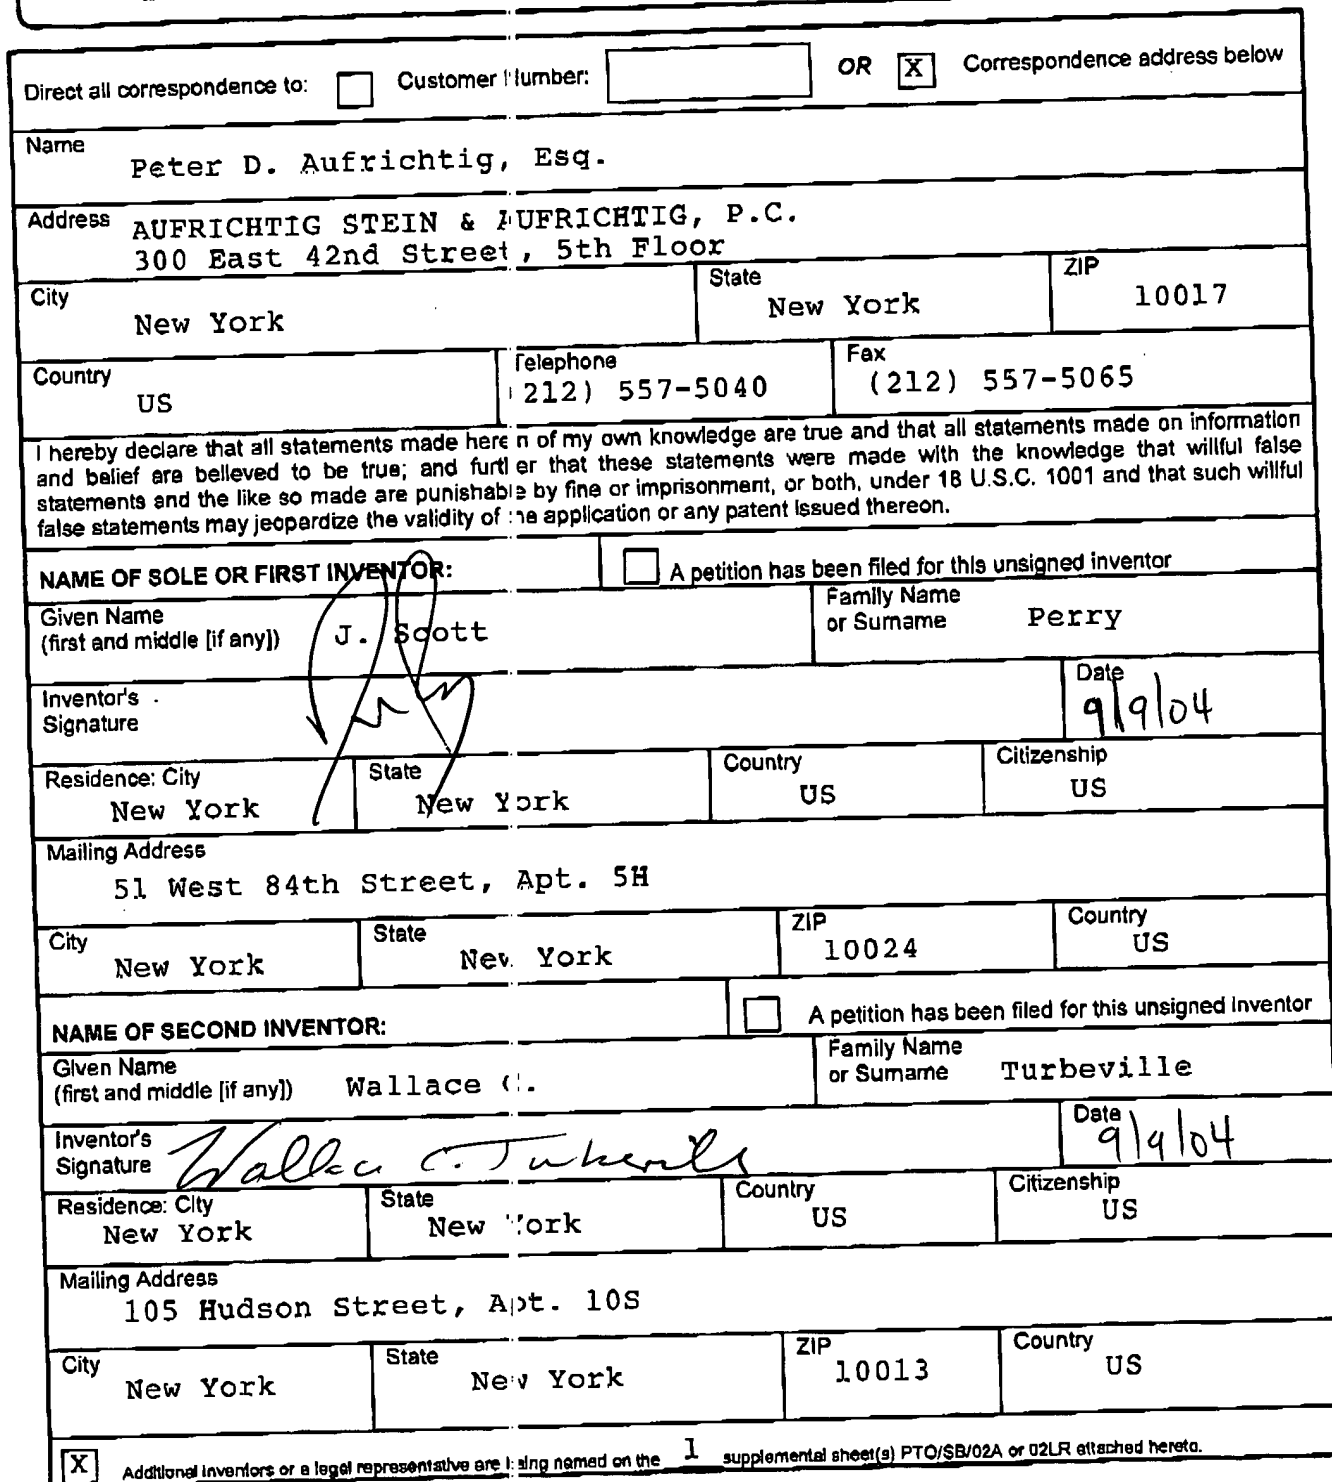 Direct all correspondence to: Customer Number: OR X Correspondence address below
Name
Peter D. Aufrichtig, Esq.
Address
AUFRICHTIG STEIN & AUFRICHTIG, P.C.
300 East 42nd Street, 5th Floor
City State ZIP
New York New York 10017
Country Telephone Fax
US 212) 557-5040 (212) 557-5065
I hereby declare that all statements made herein of my own knowledge are true and that all statements made on information
and belief are believed to be true; and further that these statements were made with the knowledge that willful false
statements and the like so made are punishable by fine or imprisonment, or both, under 18 U.S.C. 1001 and that such willful
false statements may jeopardize the validity of the application or any patent issued thereon.
NAME OF SOLE OR FIRST INVENTOR: A petition has been filed for this unsigned inventor
Given Name Family Name
(first and middle [if any]) J. Scott or Surname Perry
Inventor's Date
Signature 9/9/04
Residence: City State Country Citizenship
New York New York US US
Mailing Address
51 West 84th Street, Apt. 5H
City State ZIP Country
New York New York 10024 US
NAME OF SECOND INVENTOR: A petition has been filed for this unsigned inventor
Given Name Family Name
(first and middle [if any]) Wallace C. or Surname Turbeville
Inventor's Date
Signature Wallace C. Turbeville 9/9/04
Residence: City State Country Citizenship
New York New York US US
Mailing Address
105 Hudson Street, Apt. 10S
City State ZIP Country
New York New York 10013 US
X Additional inventors or a legal representative are being named on the 1 supplemental sheet(s) PTO/SB/02A or 02LR attached hereto.